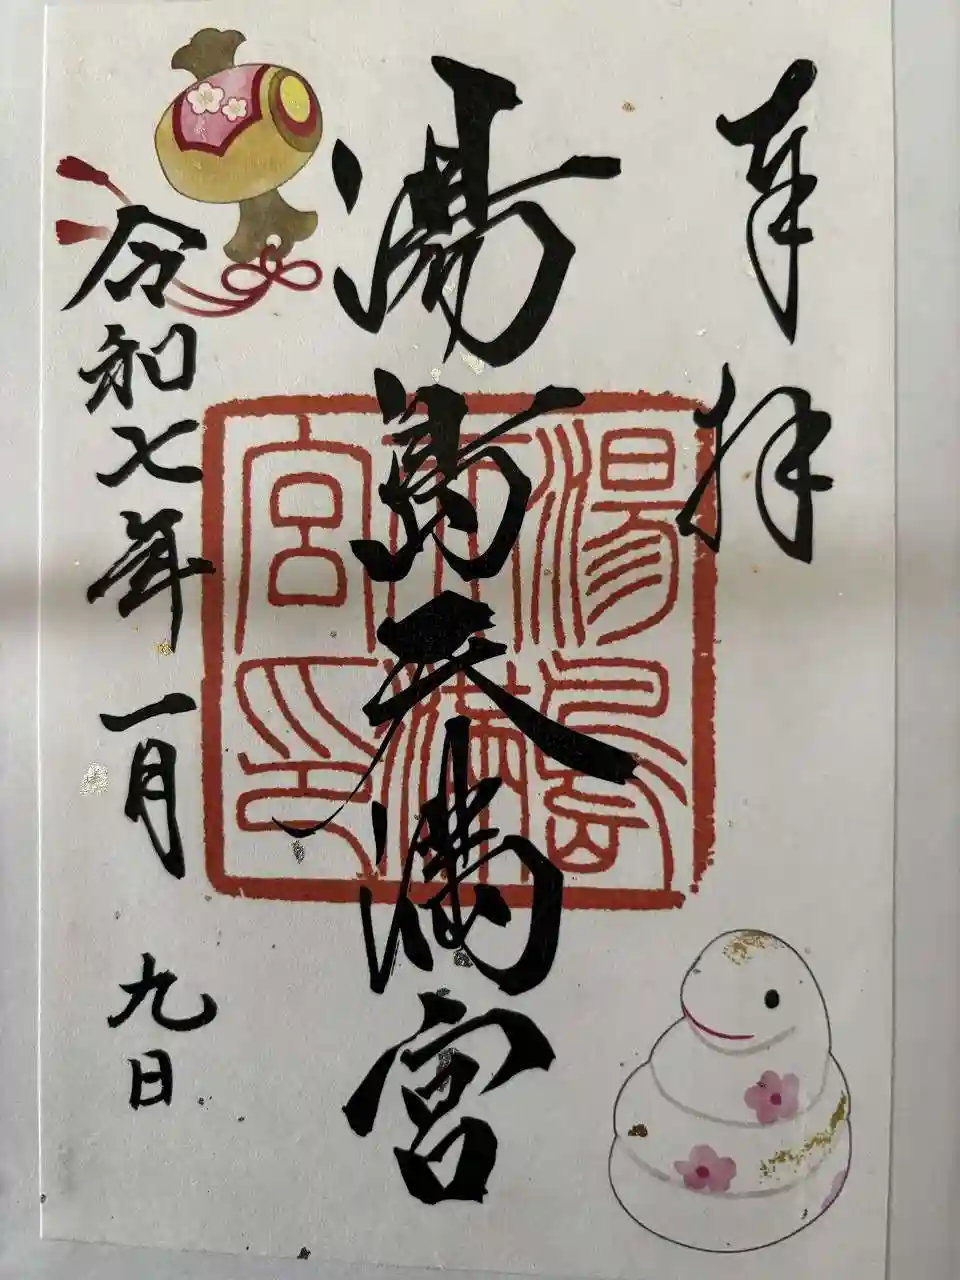 奉拝
湯島天満宮
湯島天満宮印
令和七年一月九日